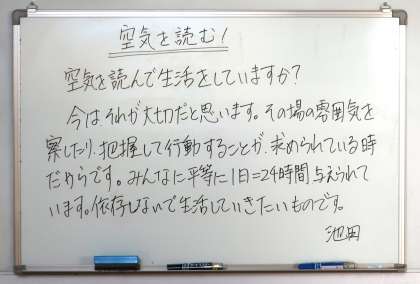 空気を読む!
空気を読んで生活をしていますか?
今は、それが大切だと思います。その場の雰囲気を
察したり、把握して行動することが、求められている時
だからです。みんなに平等に1日=24時間与えられて
います。依存しないで生活していきたいものです。
池田